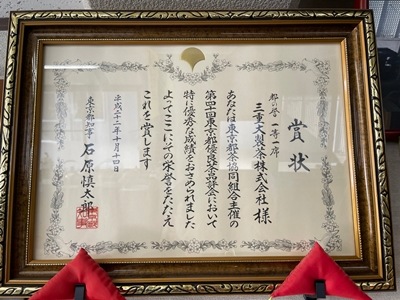 賞状
都の誉 一等一席
三重大製茶株式会社 様
あなたは東京都茶協同組合主催の
第四十回東京都優良茶品評会において
特に優秀な成績をおさめられました
よってここにその栄誉をたたえ
これを賞します
平成二十二年十月十四日
東京都知事 石原慎太郎